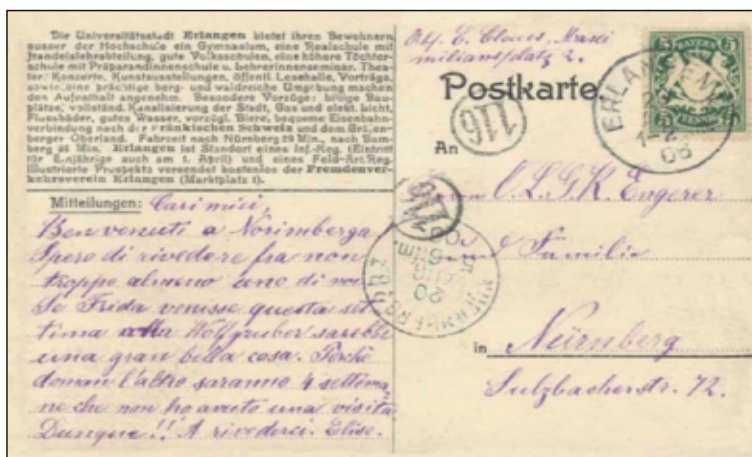 Die Universitätsstadt Erlangen bietet ihren Bewohnern
ausser der Hochschule ein Gymnasium, eine Realschule mit
Handelslehrabteilung, gute Volksschulen, eine höhere Töchter-
schule mit Präparandinnenschule u. Lehrerinnenseminar. Thea-
ter, Konzerte, Kunstausstellungen, öffentl. Lesehalle, Vorträge,
sowie eine prächtige berg- und waldreiche Umgebung machen
den Aufenthalt angenehm. Besondere Vorzüge: billige Bau-
plätze, vollständ. Kanalisierung der Stadt, Gas und elekt. Licht,
Flussbäder, gutes Wasser, vorzügl. Biere, bequeme Eisenbahn-
verbindung nach der Fränkischen Schweiz und dem
Oberland. Fahrzeit nach Nürnberg 29 Min., nach Bam-
berg Min. Erlangen ist Standort eines Inf.-Reg. (Eintritt
für Einjährige auch am 1. April) und eines Feld-Art.Reg.
Illustrierte Prospekte versendet kostenlos der Fremdenver-
kehrsverein Erlangen (Marktplatz 1).
Mitteilungen: Cari miei,
Benvenuti a Norimberga!
Spero di rivedere fra non
troppo almeno uno di voi
Se Frida venisse questa set
tima Wolfgruber sarebbe
una gran bella cosa. Perchè
domani l'altro saranno 4 settima
ne che non ho avuto una visita
Dunque!! A rivederci. Elise.
Abs. E. Claus, Maxi
miliansplatz 2.
Postkarte.
5 BAYERN 5
ERLANGEN
1-2
06
116
An
O.L.G.R. Engerer
und Familie
NUERNBERG
20
AUG
in Nürnberg
Sulzbacherstr. 72.